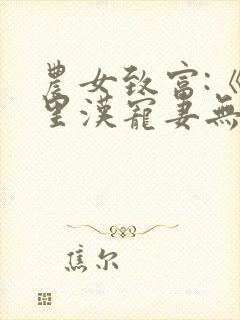 農女致富:《
里漢寵妻無
焦尔